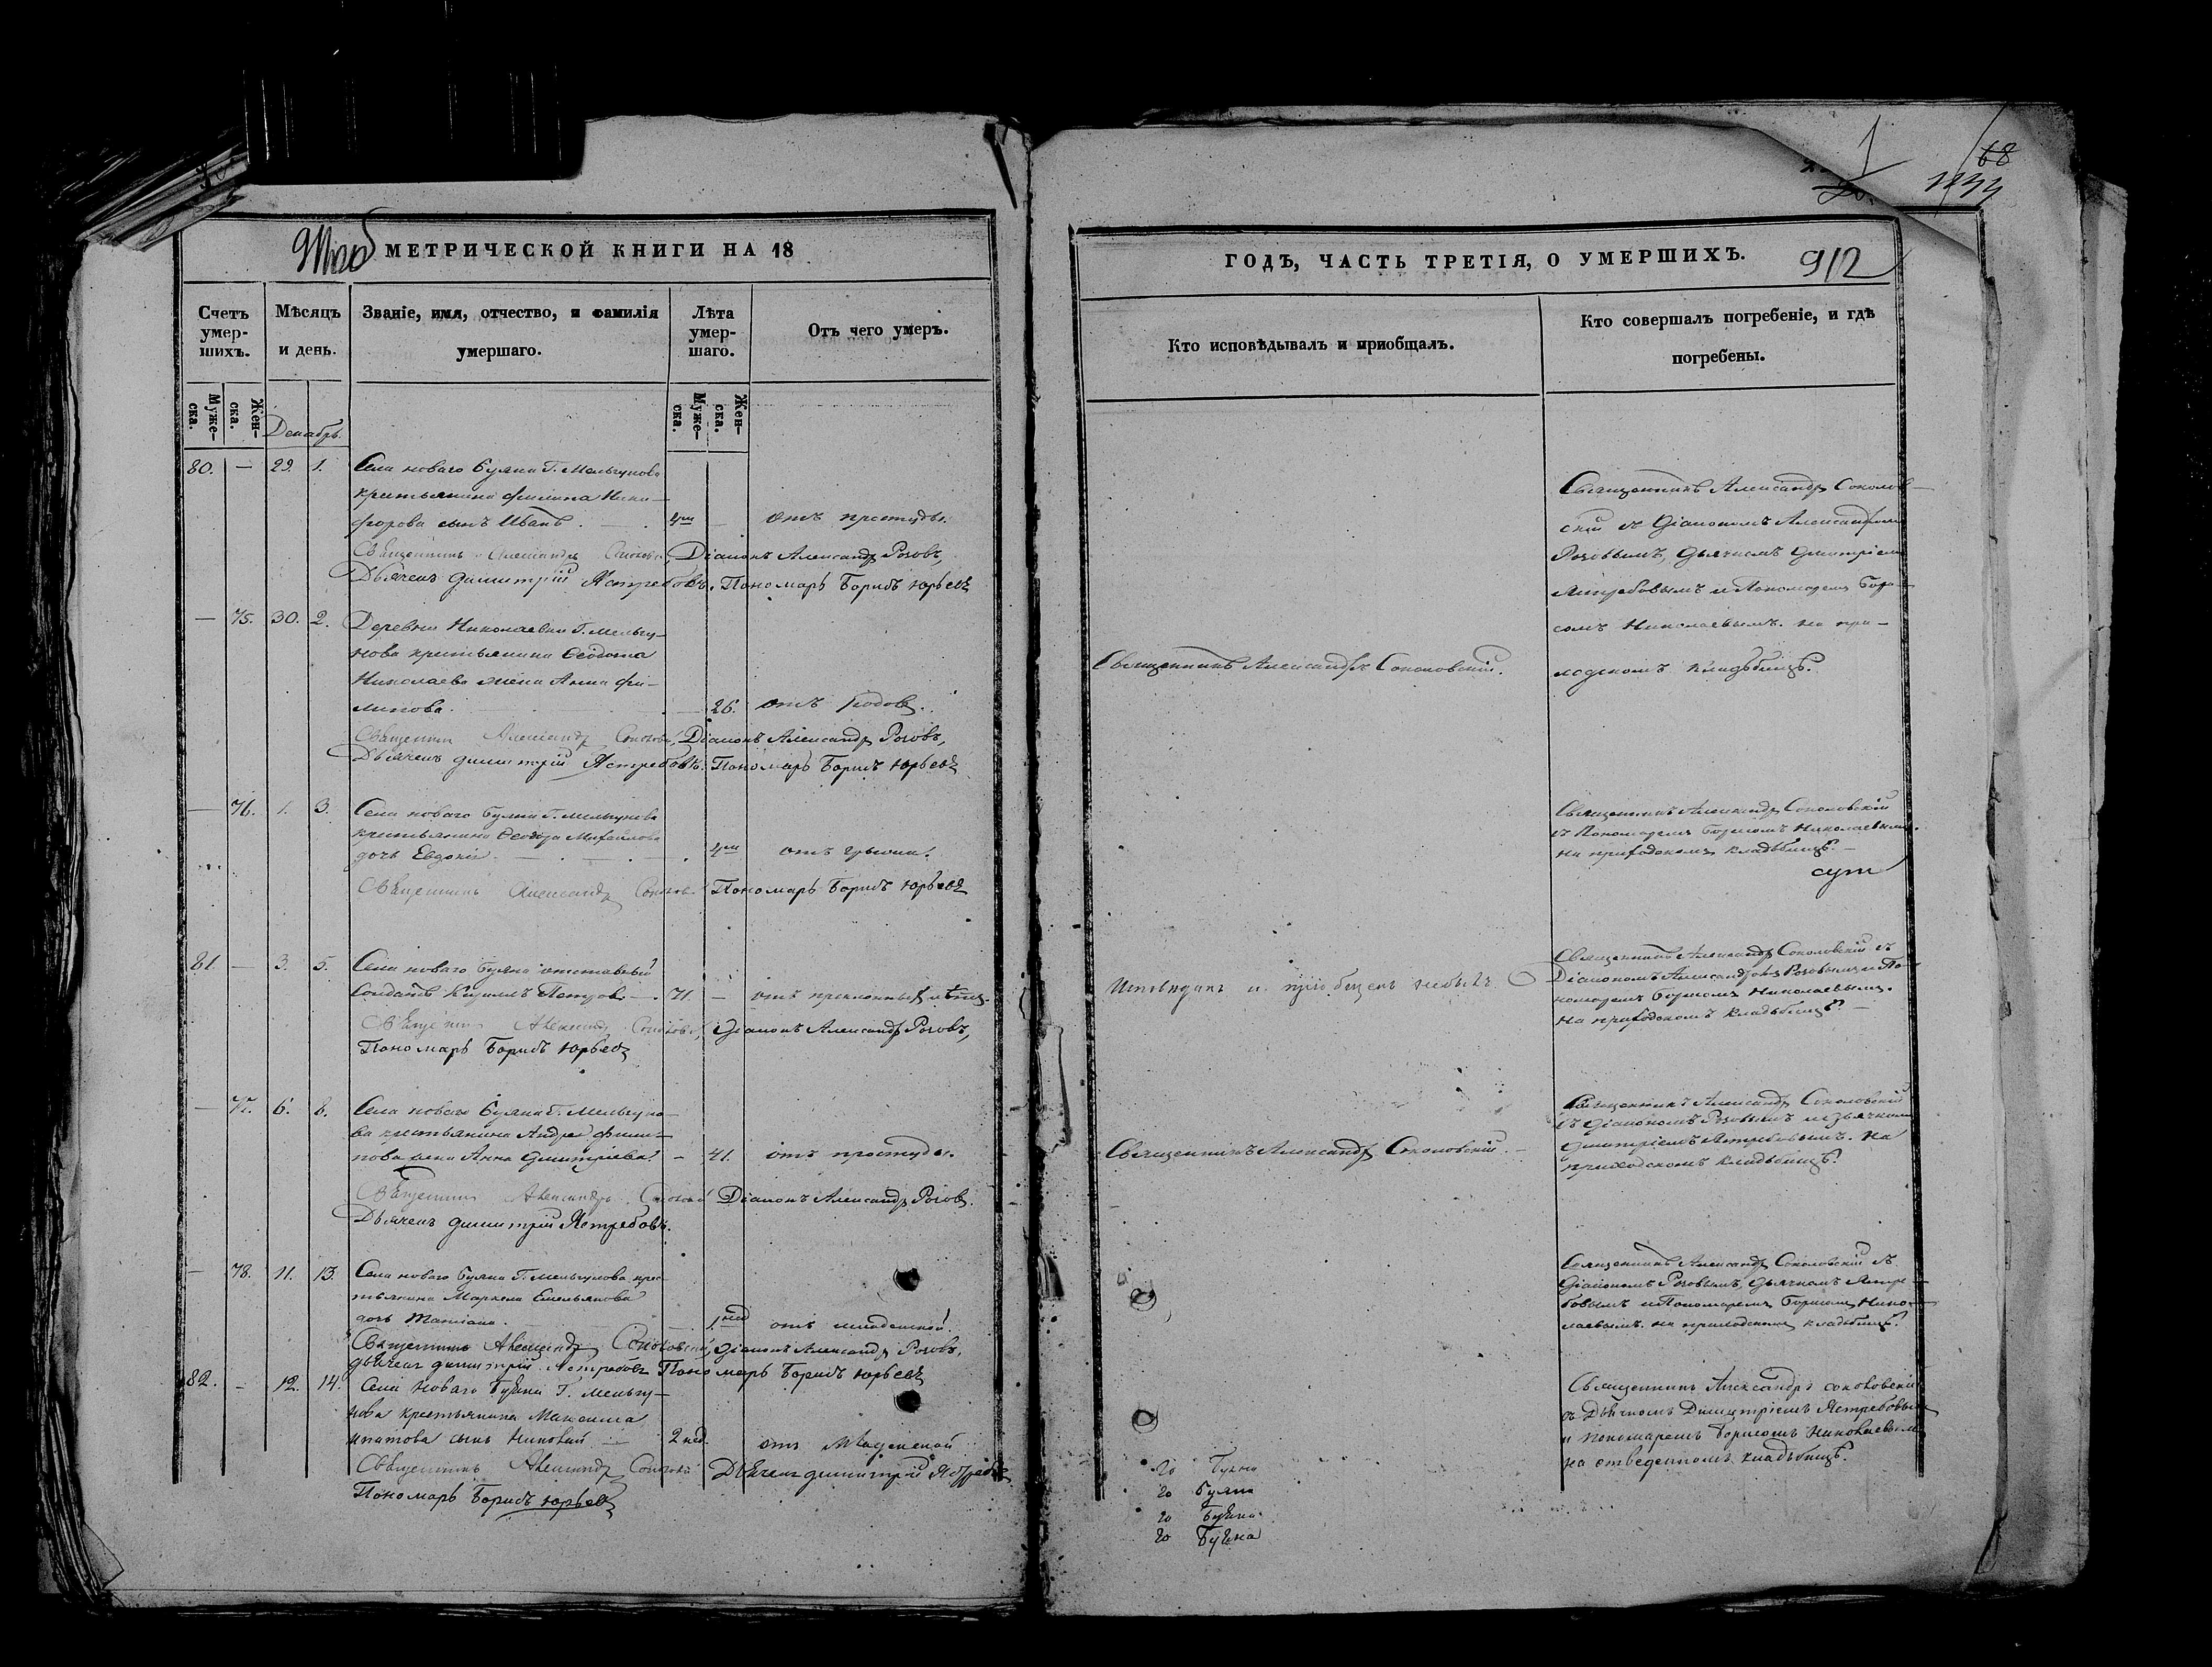 МЕТРИЧЕСКОЙ КНИГИ НА 18
Счетъ умер-шихъ.
Мѣсяцъ и день.
Званіе, имя, отчество, и фамилія умершаго.
Лѣта умер-шаго.
Отъ чего умеръ.
Муже-ска.
Жен-ска.
Муже-ска.
Жен-ска.
Декабрь
80. — 29. 1. Села новаго Буяна Г. Мельгунова
крестьянина Филипа Ники-
форова сынъ Иванъ. — отъ простуды.
Священникъ Александръ Діаконъ Александръ Розовъ,
Дьячекъ Димитрій Ястребовъ. Пономарь Борисъ Юрьевъ
— 75. 30. 2. Деревни Николаевки Г. Мельгу-
нова крестьянина Ѳеодота
Николаева жена Анна Фи-
липова. — 26. отъ родовъ.
Священникъ Александръ Діаконъ Александръ Розовъ,
Дьячекъ Димитрій Ястребовъ. Пономарь Борисъ Юрьевъ
— 76. 1. 3. Села новаго Буяна Г. Мельгунова
крестьянина Ѳеодора Михайлова
дочь Евдокія. отъ грыжи.
Священникъ Александръ Пономарь Борисъ Юрьевъ
81. — 3. 5. Села новаго Буяна отставный
Солдатъ Кириллъ Петровъ — 71. — отъ преклонныхъ лѣтъ.
Священникъ Александръ Діаконъ Александръ Розовъ,
Пономарь Борисъ Юрьевъ
— 77. 6. 8. Села новаго Буяна Г. Мельгуно-
ва крестьянина Андрея Фили-
пова жена Анна Димитріева. — 41. отъ простуды.
Священникъ Александръ Діаконъ Александръ Розовъ.
Дьячекъ Димитрій Ястребовъ.
— 78. 11. 13. Села новаго Буяна Г. Мельгунова крес-
тьянина Маркела Емельянова
дочь Татіана. 1 нед отъ младенской.
Священникъ Александръ Соколовскій, Діаконъ Александръ Розовъ,
Дьячекъ Димитрій Ястребовъ Пономарь Борисъ Юрьевъ
82. — 12. 14. Села Новаго Буяна Г. Мельгу-
нова крестьянина Максима
Ипатова сынъ 2 нед. отъ младенской
Священникъ Александръ Дьячекъ Димитрій Ястребовъ
Пономарь Борисъ Юрьевъ
68
ГОДЪ, ЧАСТЬ ТРЕТІЯ, О УМЕРШИХЪ.
912
Кто исповѣдывалъ и пріобщалъ.
Кто совершалъ погребеніе, и гдѣ погребены.
Священникъ Александръ Соколов-
скій съ Діакономъ Александромъ
Розовымъ, Дьячкомъ Димитріемъ
Ястребовымъ и Пономаремъ Бори-
сомъ Николаевымъ. на при-
Священникъ Александръ Соколовскій.
ходскомъ кладбищѣ.
Священникъ Александръ Соколовскій
съ Пономаремъ Борисомъ Николаевымъ.
на приходскомъ кладбищѣ. —
Священникъ Александръ Соколовскій съ
Исповѣданъ и пріобщенъ небылъ.
Діакономъ Александромъ Розовымъ и По-
номаремъ Борисомъ Николаевымъ.
на приходскомъ кладбищѣ. —
Священникъ Александръ Соколовскій
съ Діакономъ Розовымъ и Дьячкомъ
Священникъ Александръ Соколовскій. —
Димитріемъ Ястребовымъ. На
приходскомъ кладбищѣ.
Священникъ Александръ Соколовскій съ
Діакономъ Розовымъ, Дьячкомъ Ястре-
бовымъ и Пономаремъ Борисомъ Нико-
лаевымъ. на приходскомъ кладбищѣ.
Священникъ Александръ Соколовскій
съ Дьячкомъ Димитріемъ Ястребовымъ
и Пономаремъ Борисомъ Николаевымъ
на отведенномъ кладбищѣ.
го Буяна
го Буяна
го Буяна
го Буяна